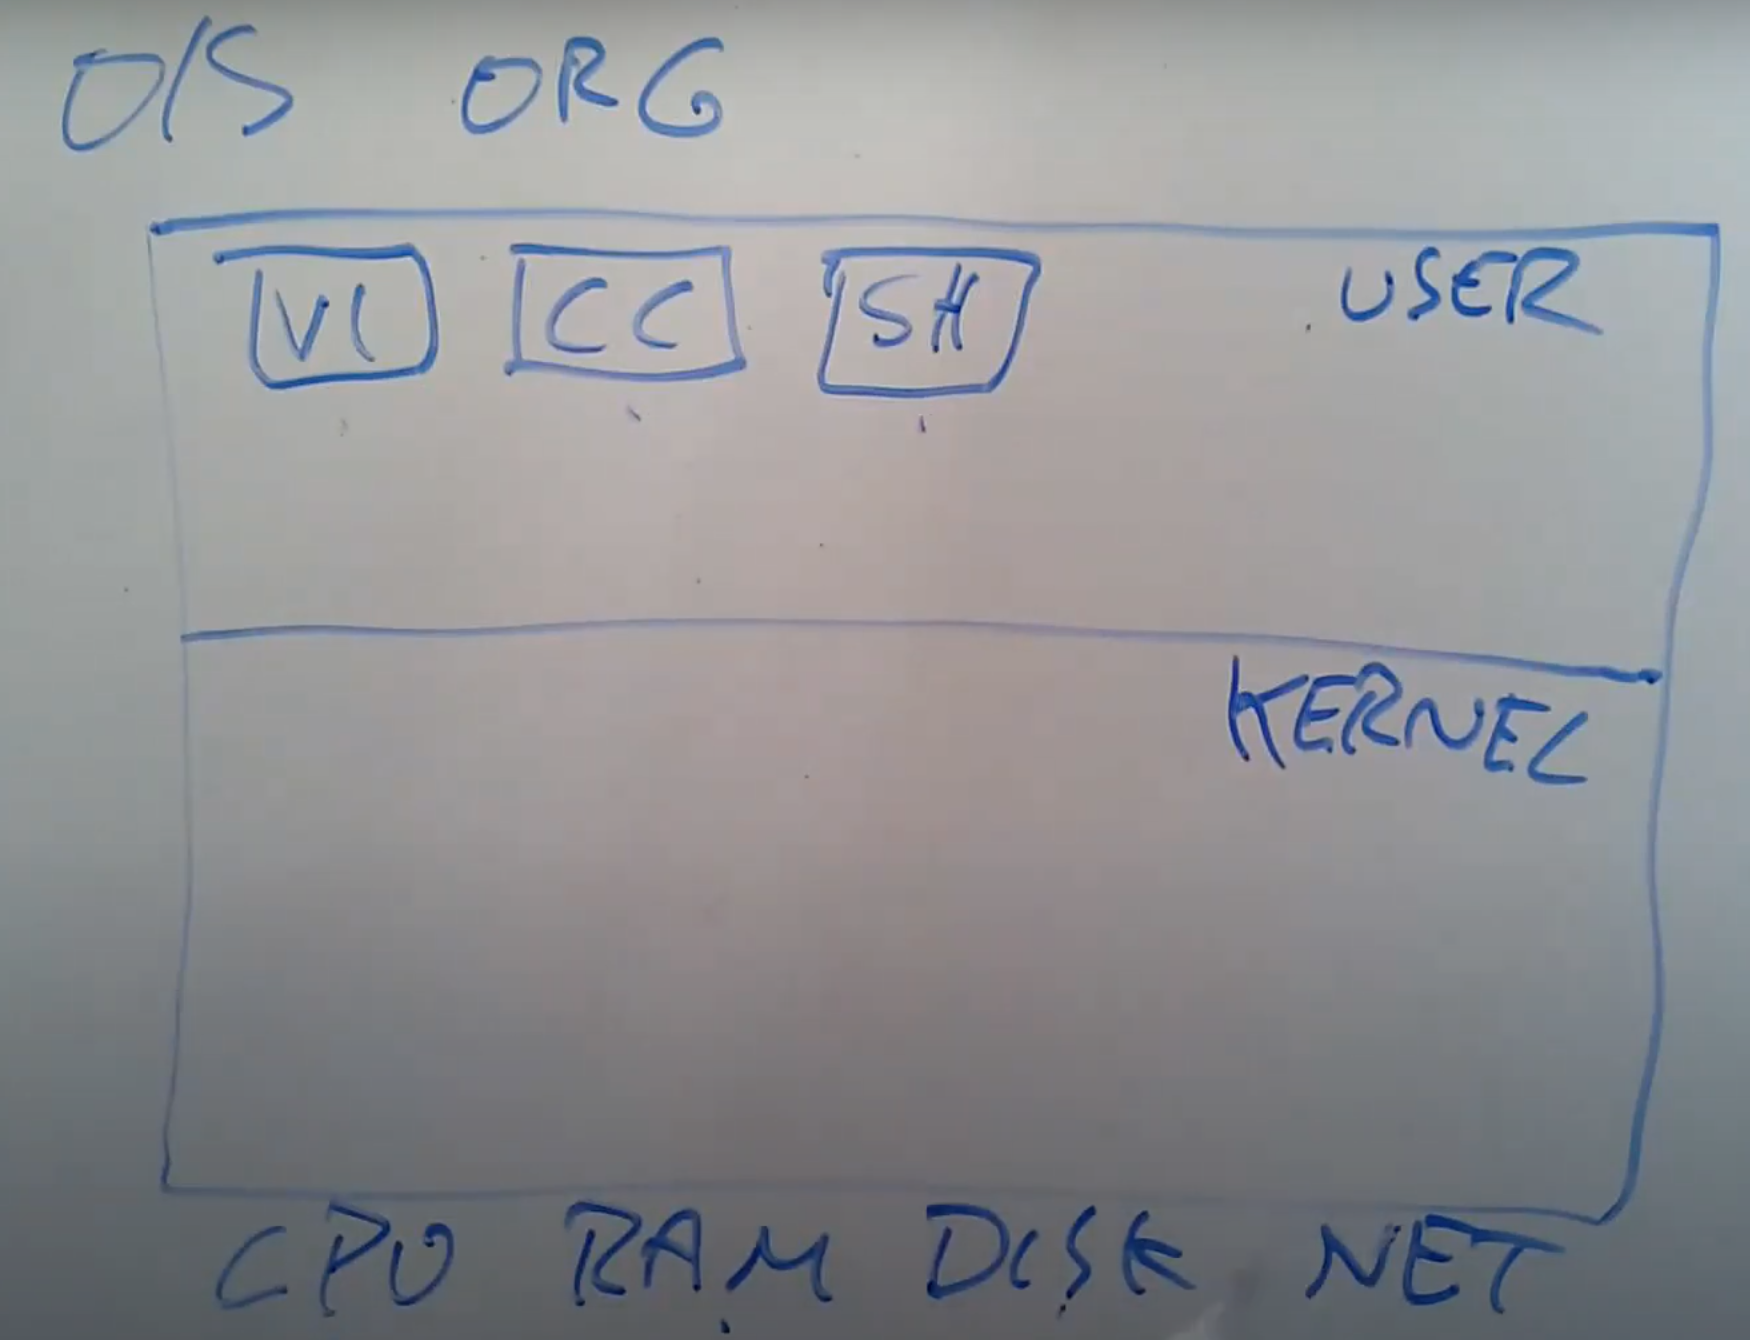 O/S ORG
VI CC SH USER
KERNEL
CPU RAM DISK NET